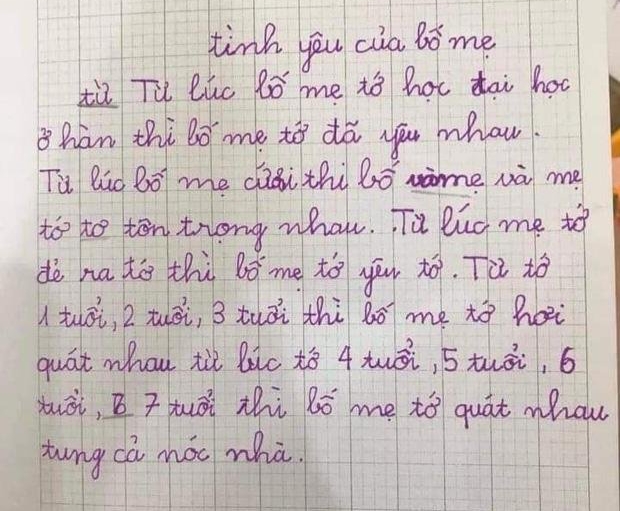 tình yêu của bố mẹ
từ Từ lúc bố mẹ tớ học đại học
ở hàn thì bố mẹ tớ đã yêu nhau.
Từ lúc bố mẹ cưới thì bố vàmẹ và mẹ
tớ tơ tôn trọng nhau. Từ lúc mẹ tớ
đẻ ra tớ thì bố mẹ tớ yêu tớ. Từ tớ
1 tuổi, 2 tuổi, 3 tuổi thì bố mẹ tớ hơi
quát nhau từ lúc tớ 4 tuổi, 5 tuổi, 6
tuổi, 7 tuổi thì bố mẹ tớ quát nhau
tung cả nóc nhà.